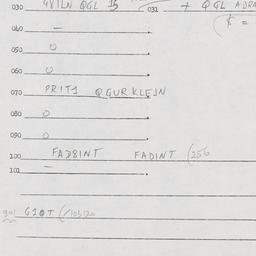 030 GVILN QGL 15 031 + QGL
040 —
050 0
060 0
070 PRITS QGURKLEIN
080 0
090 0
100 FADSINT FADINT (256
101 —
901 GIOT